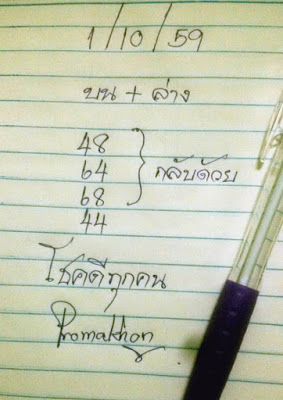 1/10/59
บน + ล่าง
48
64
68
44
} กลับด้วย
โชคดีทุกคน
Promakhon